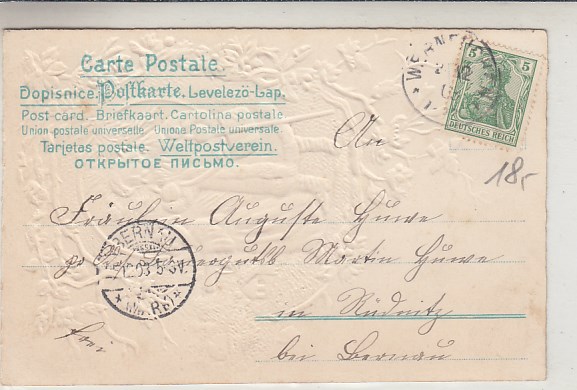 Carte Postale.
Dopisnice. Postkarte. Levelezö-Lap.
Post card. Briefkaart. Cartolina postale.
Union postale universelle. Unione Postale universale.
Tarjetas postale. Weltpostverein.
ОТКРЫТОЕ ПИСЬМО.
5 5
DEUTSCHES REICH
18,-
An
Fräulein Auguste Huwe
Martin Huwe
in Rüdnitz
bei Bernau
frei
BERNAU